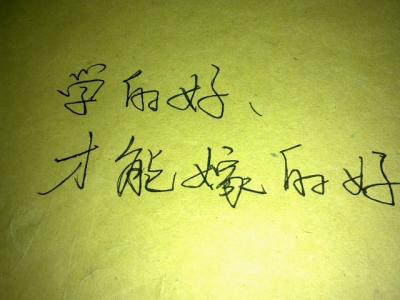 学的好、
才能嫁的好